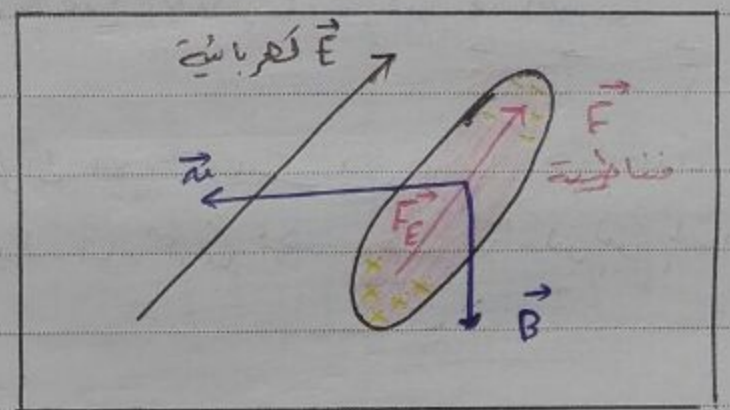 كهربائية E
F
مغناطيسية
u
F_E
B